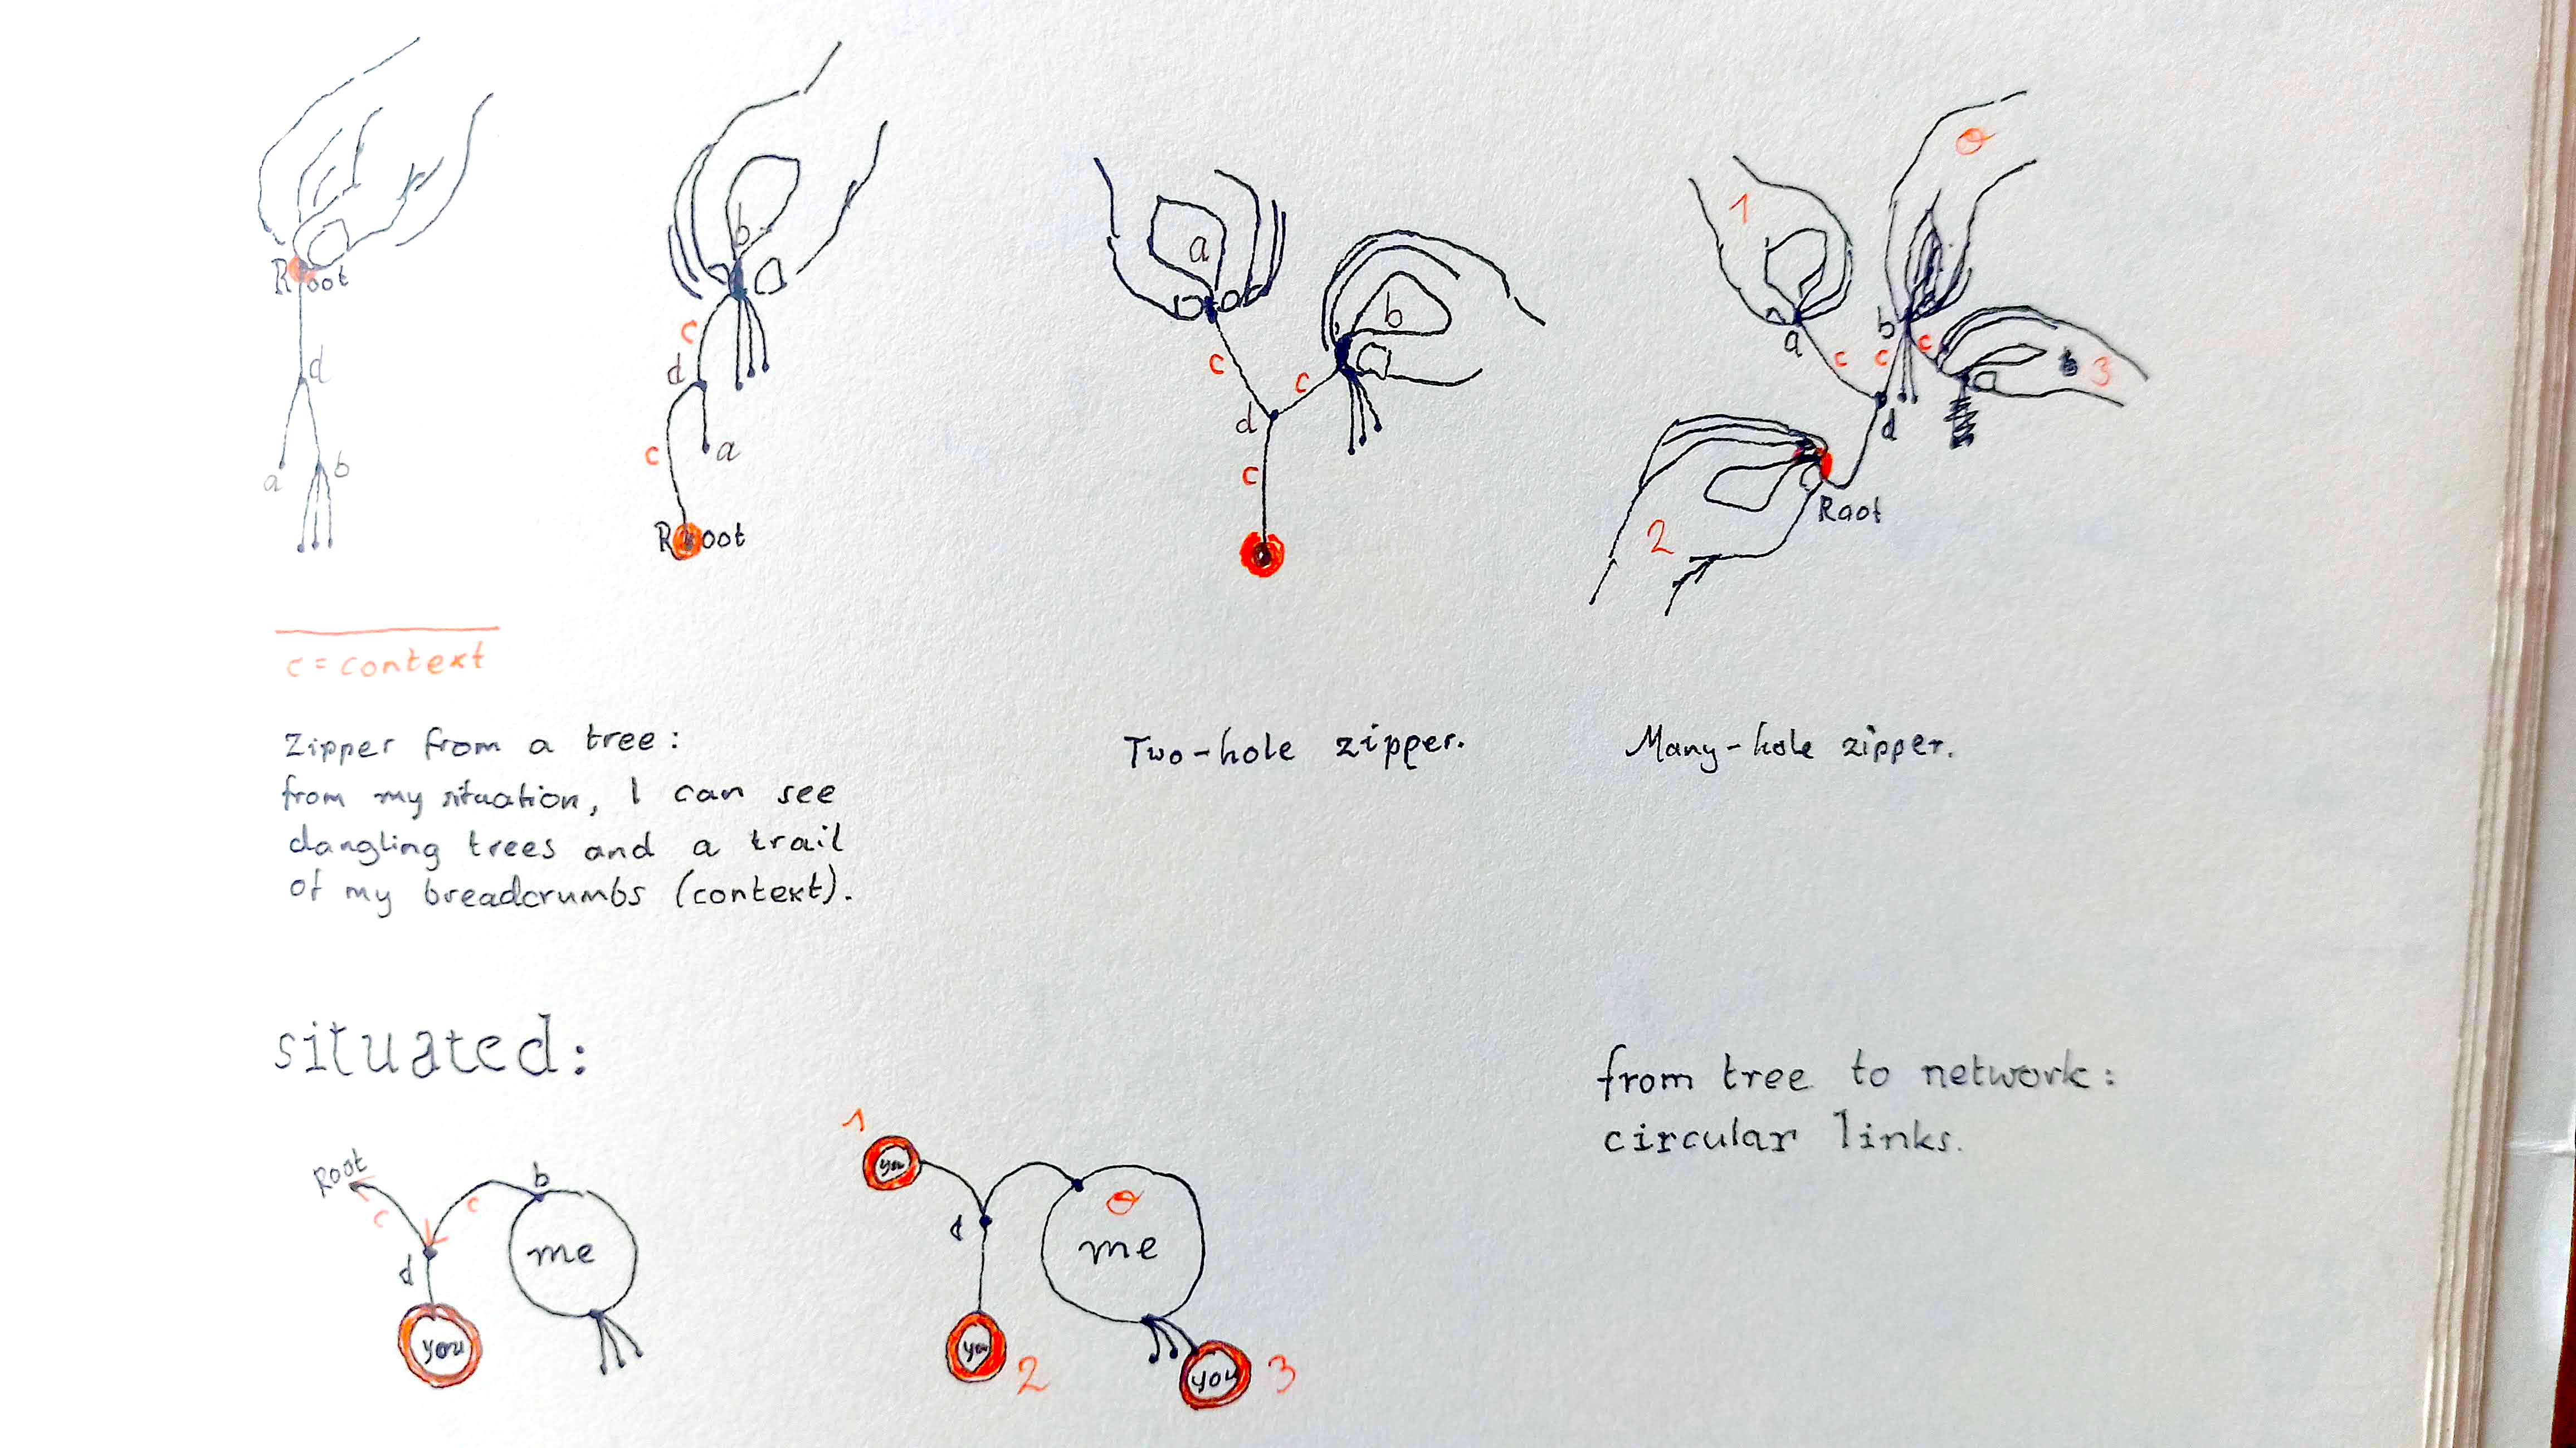 Root
d
a
b
b
c
d
c
a
Root
a
b
c
c
d
c
1
0
a
b
c
c
c
3
d
Root
2
c = context
Zipper from a tree:
from my situation, I can see
dangling trees and a trail
of my breadcrumbs (context).
Two-hole zipper.
Many-hole zipper.
situated:
Root
c
c
b
d
me
you
1
you
d
0
me
you
2
you
3
from tree to network:
circular links.